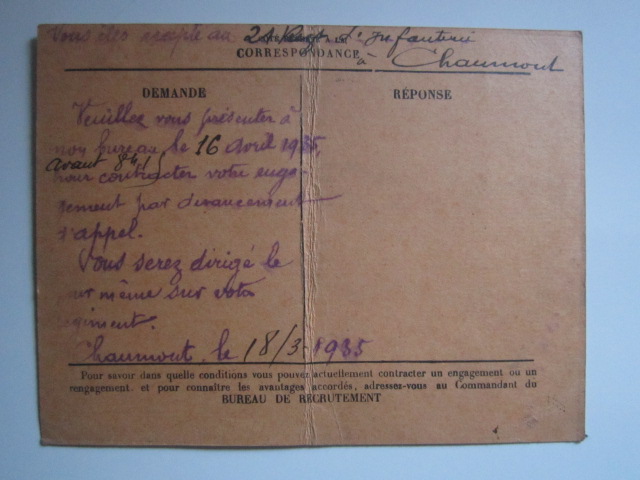 Vous êtes accepté au 21e Régt d'Infanterie
CORRESPONDANCE
à Chaumont
DEMANDE
RÉPONSE
Veuillez vous présenter à
mon bureau le 16 avril 1935,
avant 8h
pour contracter votre enga-
gement par devancement
d'appel.
Vous serez dirigé le
jour même sur votre
régiment.
Chaumont, le 18/3 1935
Pour savoir dans quelle conditions vous pouvez actuellement contracter un engagement ou un
rengagement et pour connaître les avantages accordés, adressez-vous au Commandant du
BUREAU DE RECRUTEMENT